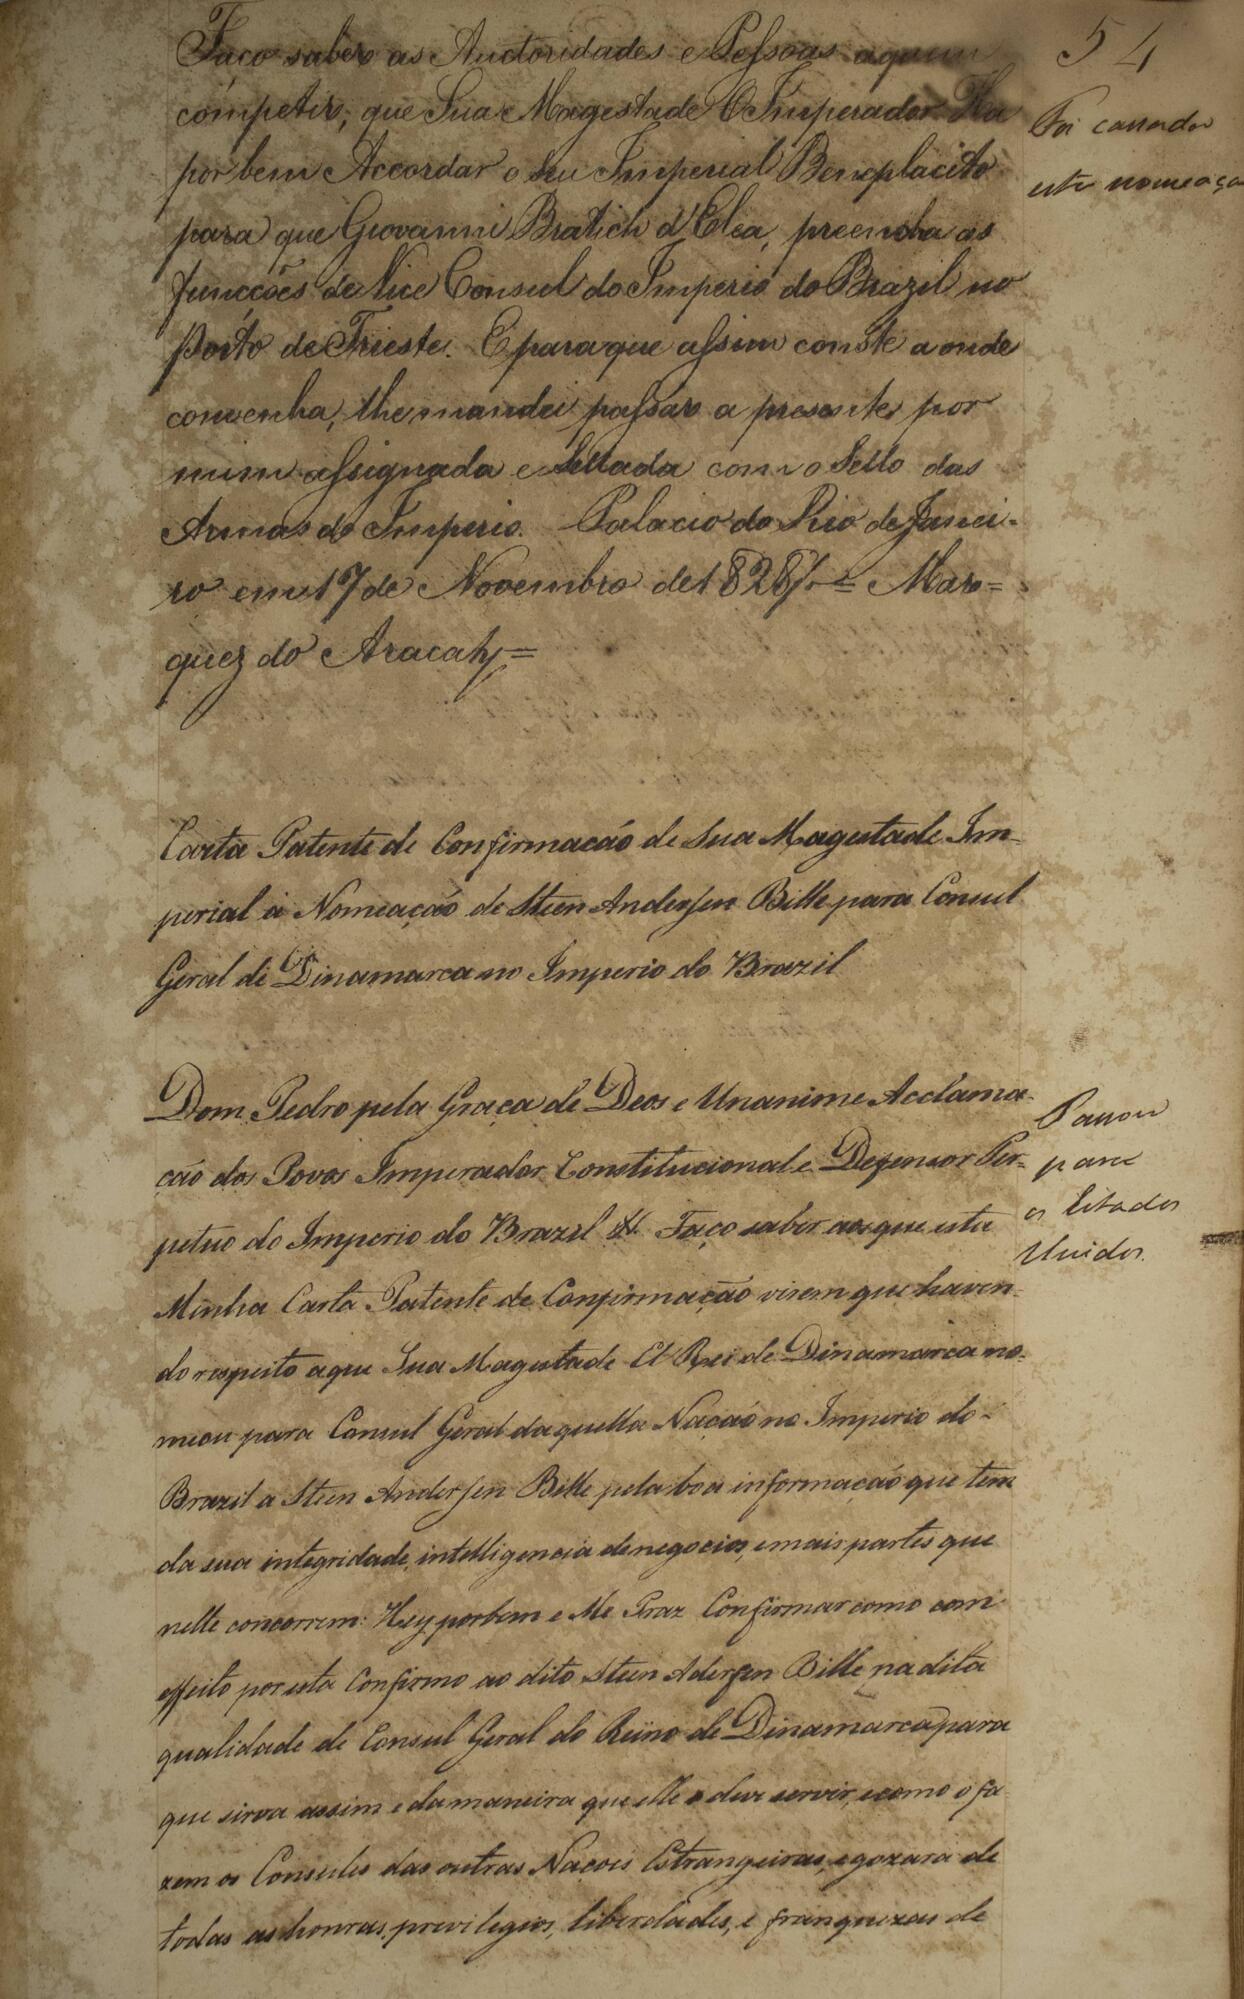 54
Faço saber as Auctoridades e Pessoas aquem
competir, que Sua Magestade O Imperador Ha
por bem Accordar o seu Imperial Beneplacito
para que Giovanni Bratich d'Elea, preencha as
funcções de Vice Consul do Imperio do Brazil no
Porto de Trieste. E para que assim conste a onde
convenha, lhe mandei passar a presente por
mim assignada e Sellada com o Sello das
Armas do Imperio. Palacio do Rio de Janei-
ro em 17 de Novembro de 1828 = Mar=
quez do Aracaty=
Foi cassada
esta nomeaça
Carta Patente de Confirmacáo de Sua Magestade Im-
perial á Nomeaçaõ de Steen Andersen Bille para Consul
Geral de Dinamarca no Imperio do Brazil
Dom Pedro pela Graça de Deos e Unanime Acclama-
cáo dos Povos Imperador Constitucional e Defensor Per-
petuo do Imperio do Brazil &. Faço saber aos que esta
Minha Carta Patente de Confirmaçaõ virem que haven-
do respeito a que Sua Magestade El Rei de Dinamarca no-
meou para Consul Geral daquella Naçaõ no Imperio do-
Brazil a Steen Andersen Bille pela boa informaçaõ que tem
da sua integridade, intelligencia de negocios, e mais partes que
nelle concorrem: Hey por bem e Me Praz Confirmar como com
effeito por esta Confirmo ao dito Steen Adersen Bille na dita
qualidade de Consul Geral do Reino de Dinamarca para
que sirva assim e da maneira que elle o deve servir, e como o fa
zem os Consules das outras Naçois Estrangeiras, e gozara de
todas as honras, previlegios, liberdades, e franquezas de
Passou
para
os Estados
Unidos.